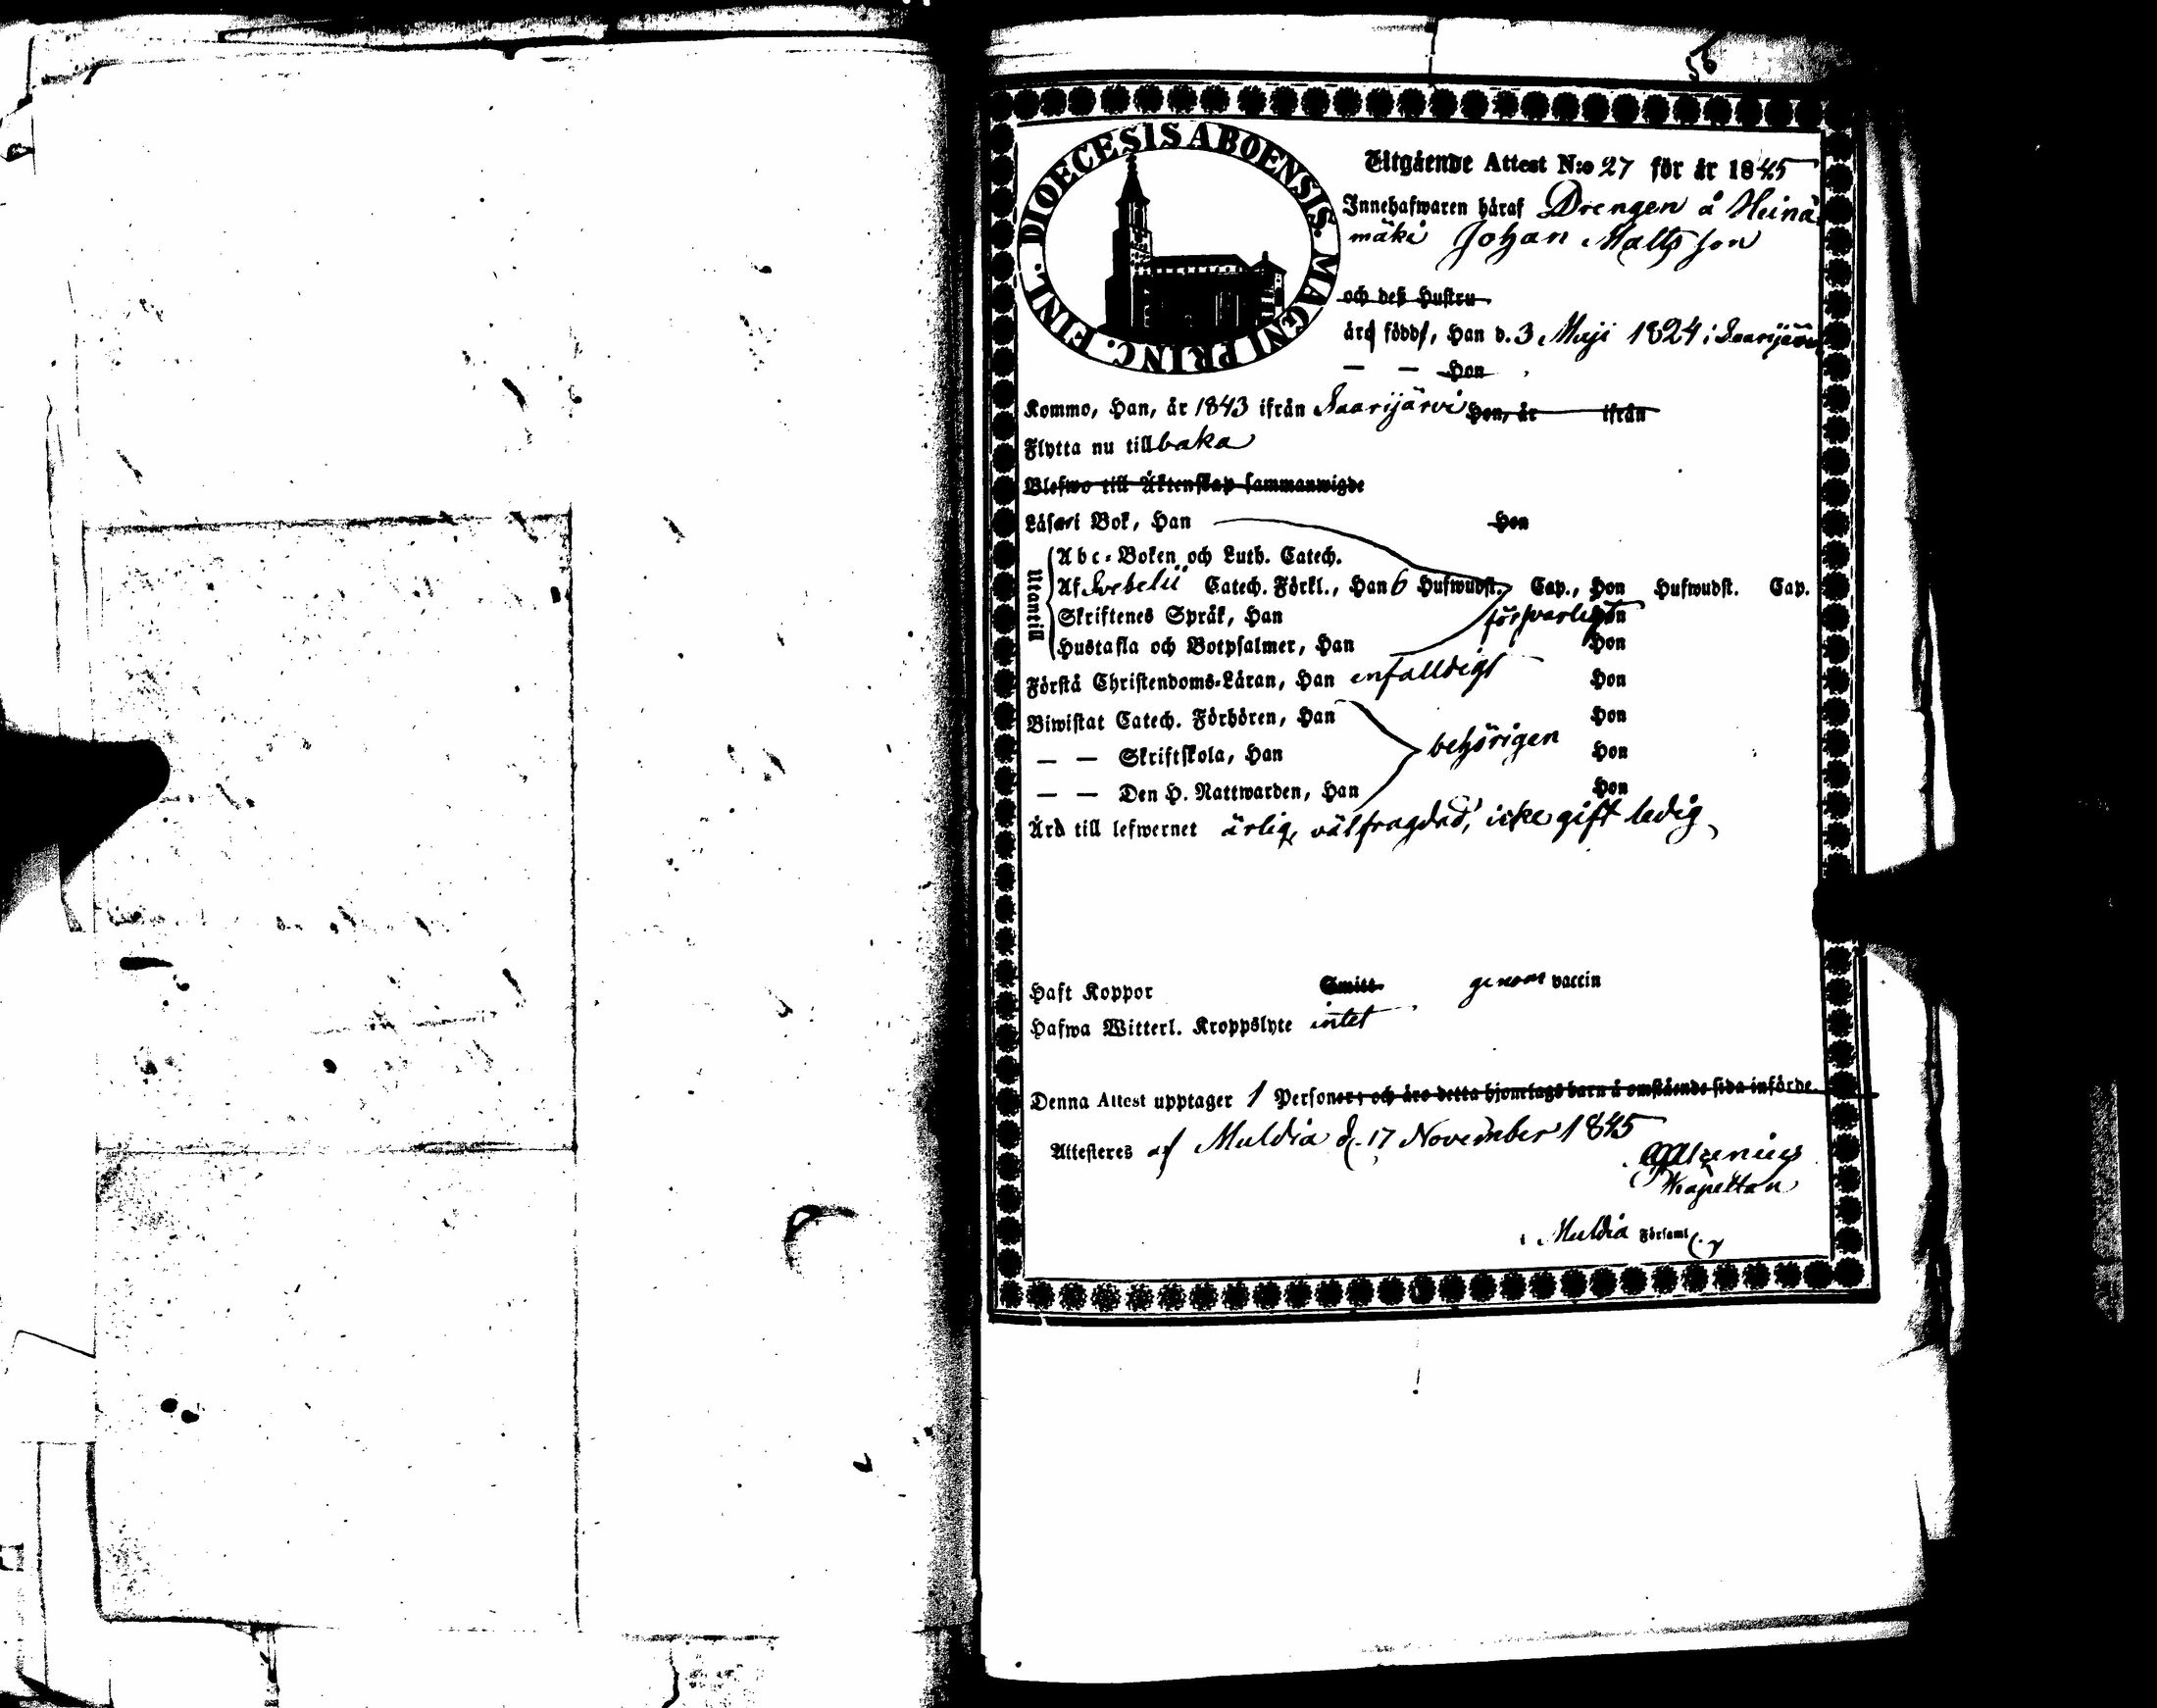 56
DIOECESIS ABOENSIS. MAGNI PRINC. FINL.
Utgående Attest N:o 27 för år 1845
Innehafwaren häraf Drengen å Heinä
mäki Johan Matts son
och deß Hustru
äro född, Han d. 3 Maji 1824 i Saarijärvi
— — Hon
Kommo, Han, år 1843 ifrån Saarijärvi Hon, år ifrån
Flytta nu tillbaka
Blefwo till Äktenskap sammanwigde
Läser i Bok, Han Hon
Utantill
Abc-Boken och Luth. Catech.
Af Svebelii Catech. Förkl., Han 6 Hufwudst. Cap., Hon Hufwudst. Cap.
Skriftenes Språk, Han försvarligt Hon
Hustafla och Botpsalmer, Han Hon
Förstå Christendoms-Läran, Han enfaldigt Hon
Biwistat Catech. Förhören, Han Hon
— — Skriftskola, Han behörigen Hon
— — Den H. Nattwarden, Han Hon
Ärd till lefwernet ärlig, välfrägdad, icke gift ledig
Haft Koppor Smitt genom vaccin
Hafwa Witterl. Kroppslyte intet
Denna Attest upptager 1 Personer; och äro detta hjonelags barn å omstående sida införde.
Attesteres af Muldia d. 17 November 1845
Kapellan
i Muldia Församl.